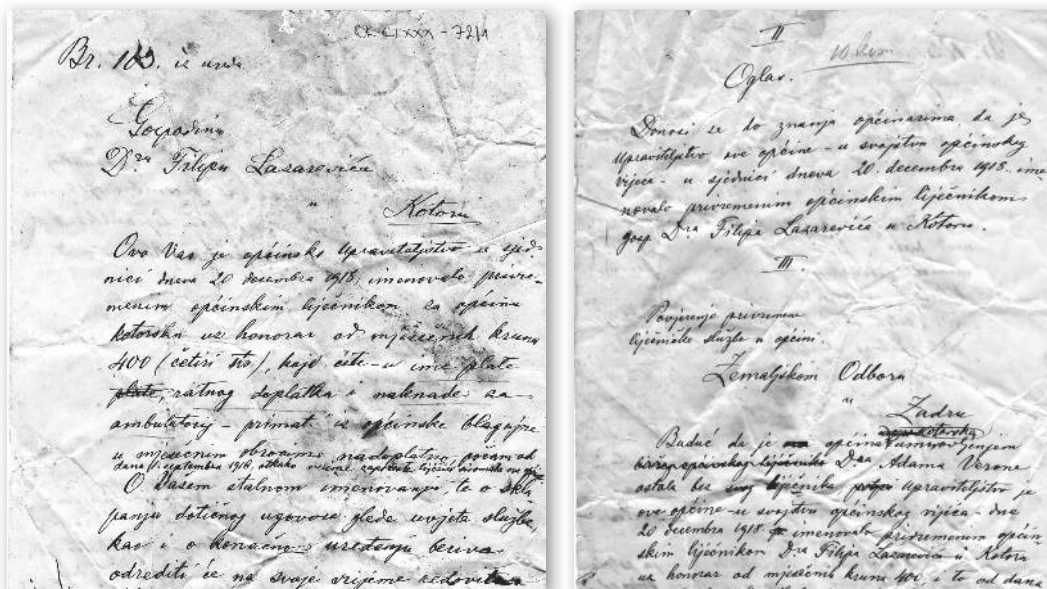 CXCIXXX - 72/1
Br. 163. iz ureda
Gospodinu
Dru Filipu Lazareviću
u
Kotoru
Ovo Vas je općinsko Upraviteljstvo u sjed-
nici dneva 20 decembra 1918, imenovalo privre-
menim općinskim liječnikom za općinu
kotorsku uz honorar od mjesečnih kruna
400 (četiri sto), koje ćete - u ime plate
plate, ratnog doplatka i naknade za
ambulatorij - primat iz općinske blagajne
u mjesečnim obrocima nadoplatno, počam od
dana 1 septembra 1918, otkako
O Vašem stalnom imenovanju, te o skla
panju dotičnog ugovora glede uvjeta službe,
kao i o konačnom uređenju beriva
odrediti će na svoje vrijeme redovita
II
Oglas.
Donosi se do znanja općinarima da je
Upraviteljstvo ove općine - u svojstvu općinskog
vijeća - u sjednici dneva 20 decembra 1918. ime
novalo privremenim općinskim liječnikom
gosp Dra Filipa Lazarevića u Kotoru.
III.
Povjerenje privremene
liječničke službe u općini.
Zemaljskom Odboru
u
Zadru
Buduć da je općina
Dra Adama Verone
ostala bez liječnika Upraviteljstvo je
ove općine - u svojstvu općinskog vijeća - dne
20 decembra 1918. imenovalo privremenim općin
skim liječnikom Dra Filipa Lazarevića u Kotoru
uz honorar od mjesečnih kruna 400, i to od dana